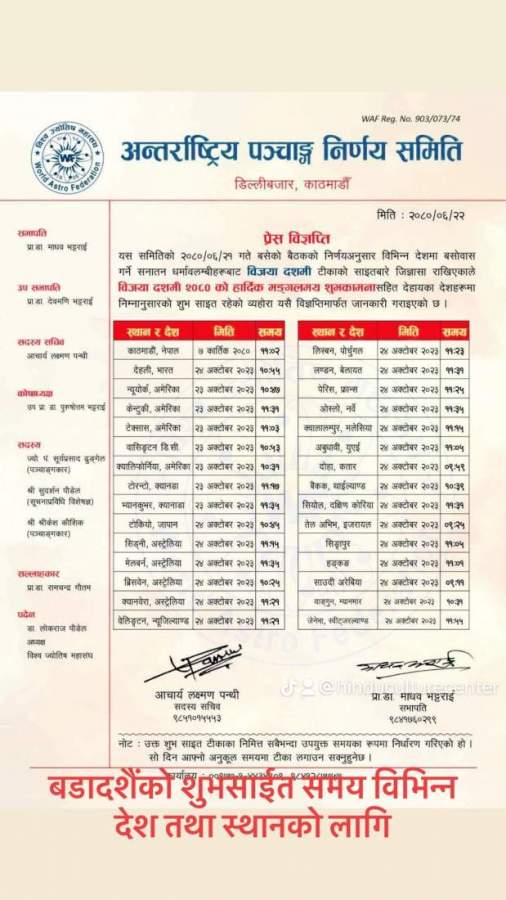 WAF Reg. No. 903/073/74
विश्व ज्योतिष महासंघ
WAF
World Astro Federation
अन्तर्राष्ट्रिय पञ्चाङ्ग निर्णय समिति
डिल्लीबजार, काठमाडौँ
मिति : २०८०/०६/२२
सभापति
प्रा.डा. माधव भट्टराई
उप सभापति
प्रा.डा. देवमणि भट्टराई
सदस्य सचिव
आचार्य लक्ष्मण पन्थी
कोषाध्यक्ष
उप प्रा. डा. पुरुषोत्तम भट्टराई
सदस्य
ज्यो. पं. सूर्यप्रसाद ढुङ्गेल
(पञ्चाङ्गकार)
श्री सुदर्शन पौडेल
(सूचनाप्रविधि विशेषज्ञ)
श्री श्रीकेश कौशिक
(पञ्चाङ्गकार)
सल्लाहकार
प्रा.डा. रामचन्द्र गौतम
पदेन
डा. लोकराज पौडेल
अध्यक्ष
विश्व ज्योतिष महासंघ
प्रेस विज्ञप्ति
यस समितिको २०८०/०६/२१ गते बसेको बैठकको निर्णयअनुसार विभिन्न देशमा बसोवास
गर्ने सनातन धर्मावलम्बीहरूबाट विजया दशमी टीकाको साइतबारे जिज्ञासा राखिएकाले
विजया दशमी २०८० को हार्दिक मङ्गलमय शुभकामनासहित देहायका देशहरूमा
निम्नानुसारको शुभ साइत रहेको व्यहोरा यसै विज्ञप्तिमार्फत जानकारी गराइएको छ ।
स्थान र देश मिति समय
काठमाडौं, नेपाल ७ कार्तिक २०८० ११:०२
देहली, भारत २४ अक्टोबर २०२३ १०:५५
न्यूयोर्क, अमेरिका २३ अक्टोबर २०२३ १०:४७
केन्टुकी, अमेरिका २३ अक्टोबर २०२३ ११:३१
टेक्सास, अमेरिका २३ अक्टोबर २०२३ ११:०३
वासिङ्टन डि.सी. २३ अक्टोबर २०२३ १०:५३
क्यालिफोर्निया, अमेरिका २३ अक्टोबर २०२३ १०:३१
टोरन्टो, क्यानडा २३ अक्टोबर २०२३ ११:१७
भ्यानकुभर, क्यानाडा २३ अक्टोबर २०२३ ११:३५
टोकियो, जापान २४ अक्टोबर २०२३ १०:४५
सिड्नी, अस्ट्रेलिया २४ अक्टोबर २०२३ ११:१५
मेलबर्न, अस्ट्रेलिया २४ अक्टोबर २०२३ ११:३५
ब्रिसवेन, अस्ट्रेलिया २४ अक्टोबर २०२३ १०:२५
क्यानवेरा, अस्ट्रेलिया २४ अक्टोबर २०२३ ११:२१
वेलिङ्टन, न्यूजिल्याण्ड २४ अक्टोबर २०२३ ११:२१
स्थान र देश मिति समय
लिस्बन, पोर्चुगल २४ अक्टोबर २०२३ ११:२३
लण्डन, बेलायत २४ अक्टोबर २०२३ ११:३१
पेरिस, फ्रान्स २४ अक्टोबर २०२३ ११:२५
ओस्लो, नर्वे २४ अक्टोबर २०२३ ११:३५
क्यालालम्पुर, मलेसिया २४ अक्टोबर २०२३ ११:१५
अबुधावी, युएई २४ अक्टोबर २०२३ ११:०५
दोहा, कतार २४ अक्टोबर २०२३ ०९:५९
बैंकक, थाईल्याण्ड २४ अक्टोबर २०२३ १०:३९
सियोल, दक्षिण कोरिया २४ अक्टोबर २०२३ ११:३१
तेल अभिभ, इजरायल २४ अक्टोबर २०२३ ०९:२५
सिङ्गापुर २४ अक्टोबर २०२३ ११:०५
हङ्कङ २४ अक्टोबर २०२३ ११:०१
साउदी अरेबिया २४ अक्टोबर २०२३ ०९:११
याङ्गुन, म्यानमार २४ अक्टोबर २०२३ १०:३१
जेनेभा, स्वीट्जरल्याण्ड २४ अक्टोबर २०२३ ११:५५
आचार्य लक्ष्मण पन्थी
सदस्य सचिव
९८५१०१५५५३
@hinduculturecenter
प्रा.डा. माधव भट्टराई
सभापति
९८४१७६०२९९
नोट : उक्त शुभ साइत टीकाका निमित्त सबैभन्दा उपयुक्त समयका रूपमा निर्धारण गरिएको हो ।
सो दिन आफ्नो अनुकूल समयमा टीका लगाउन सक्नुहुनेछ ।
बडादशैंको शुभसाईत समय विभिन्न
देश तथा स्थानको लागि